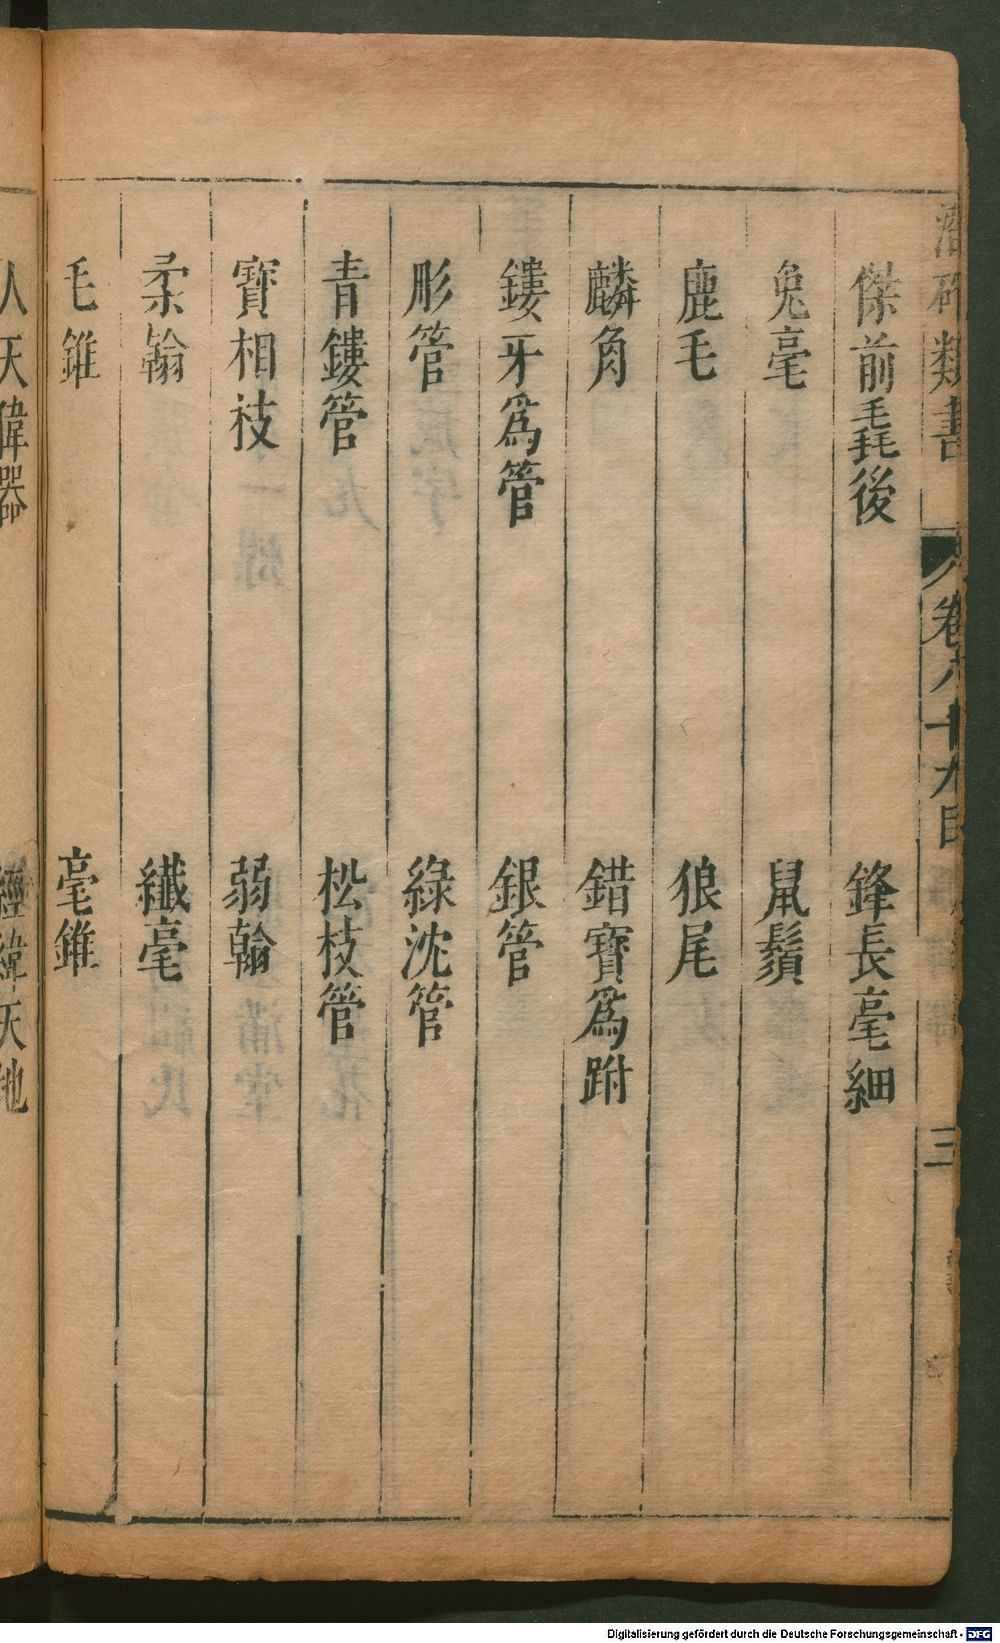 潛確類書 卷八十九目 三
傑前毳後 鋒長毫細
兔毫 鼠鬚
鹿毛 狼尾
麟角 錯寶為跗
鏤牙為管 銀管
彤管 綠沈管
青鏤管 松枝管
寶相枝 弱翰
柔翰 纖毫
毛錐 毫錐
人天偉器 經緯天地
Digitalisierung gefördert durch die Deutsche Forschungsgemeinschaft - DFG